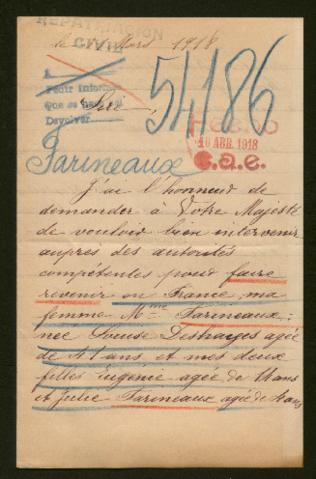 REPATRIACION
CIVIL
le Mars 1918
Pedir informe
Que se
Devolver
Sire,
54186
10 ABR. 1918
C.a.e.
Farineaux
J'ai l'honneur de
demander à Votre Majesté
de vouloir bien intervenir
auprès des autorités
compétentes pour faire
revenir en France, ma
femme Mme Farineaux
née Louise Destrayes agée
de 41 ans et mes deux
filles Eugénie agée de ans
et Julie Farineaux agée de ans